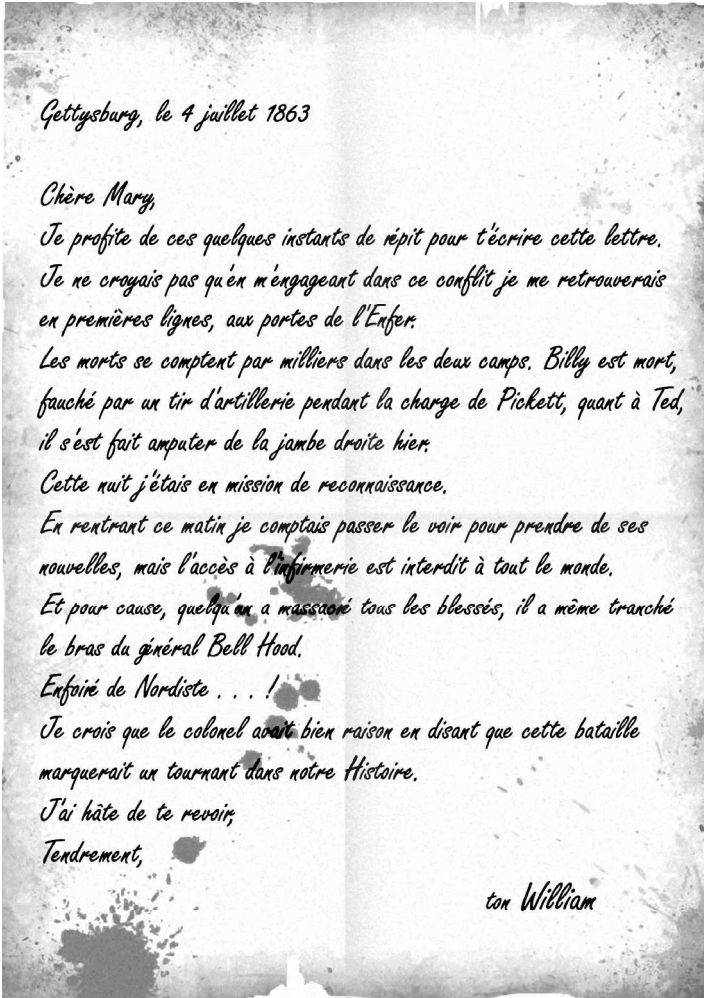 Gettysburg, le 4 juillet 1863
Chère Mary,
Je profite de ces quelques instants de répit pour t'écrire cette lettre.
Je ne croyais pas qu'en m'engageant dans ce conflit je me retrouverais
en premières lignes, aux portes de l'Enfer.
Les morts se comptent par milliers dans les deux camps. Billy est mort,
fauché par un tir d'artillerie pendant la charge de Pickett, quant à Ted,
il s'est fait amputer de la jambe droite hier.
Cette nuit j'étais en mission de reconnaissance.
En rentrant ce matin je comptais passer le voir pour prendre de ses
nouvelles, mais l'accès à l'infirmerie est interdit à tout le monde.
Et pour cause, quelqu'un a massacré tous les blessés, il a même tranché
le bras du général Bell Hood.
Enfoiré de Nordiste . . . !
Je crois que le colonel avait bien raison en disant que cette bataille
marquerait un tournant dans notre Histoire.
J'ai hâte de te revoir,
Tendrement,
ton William